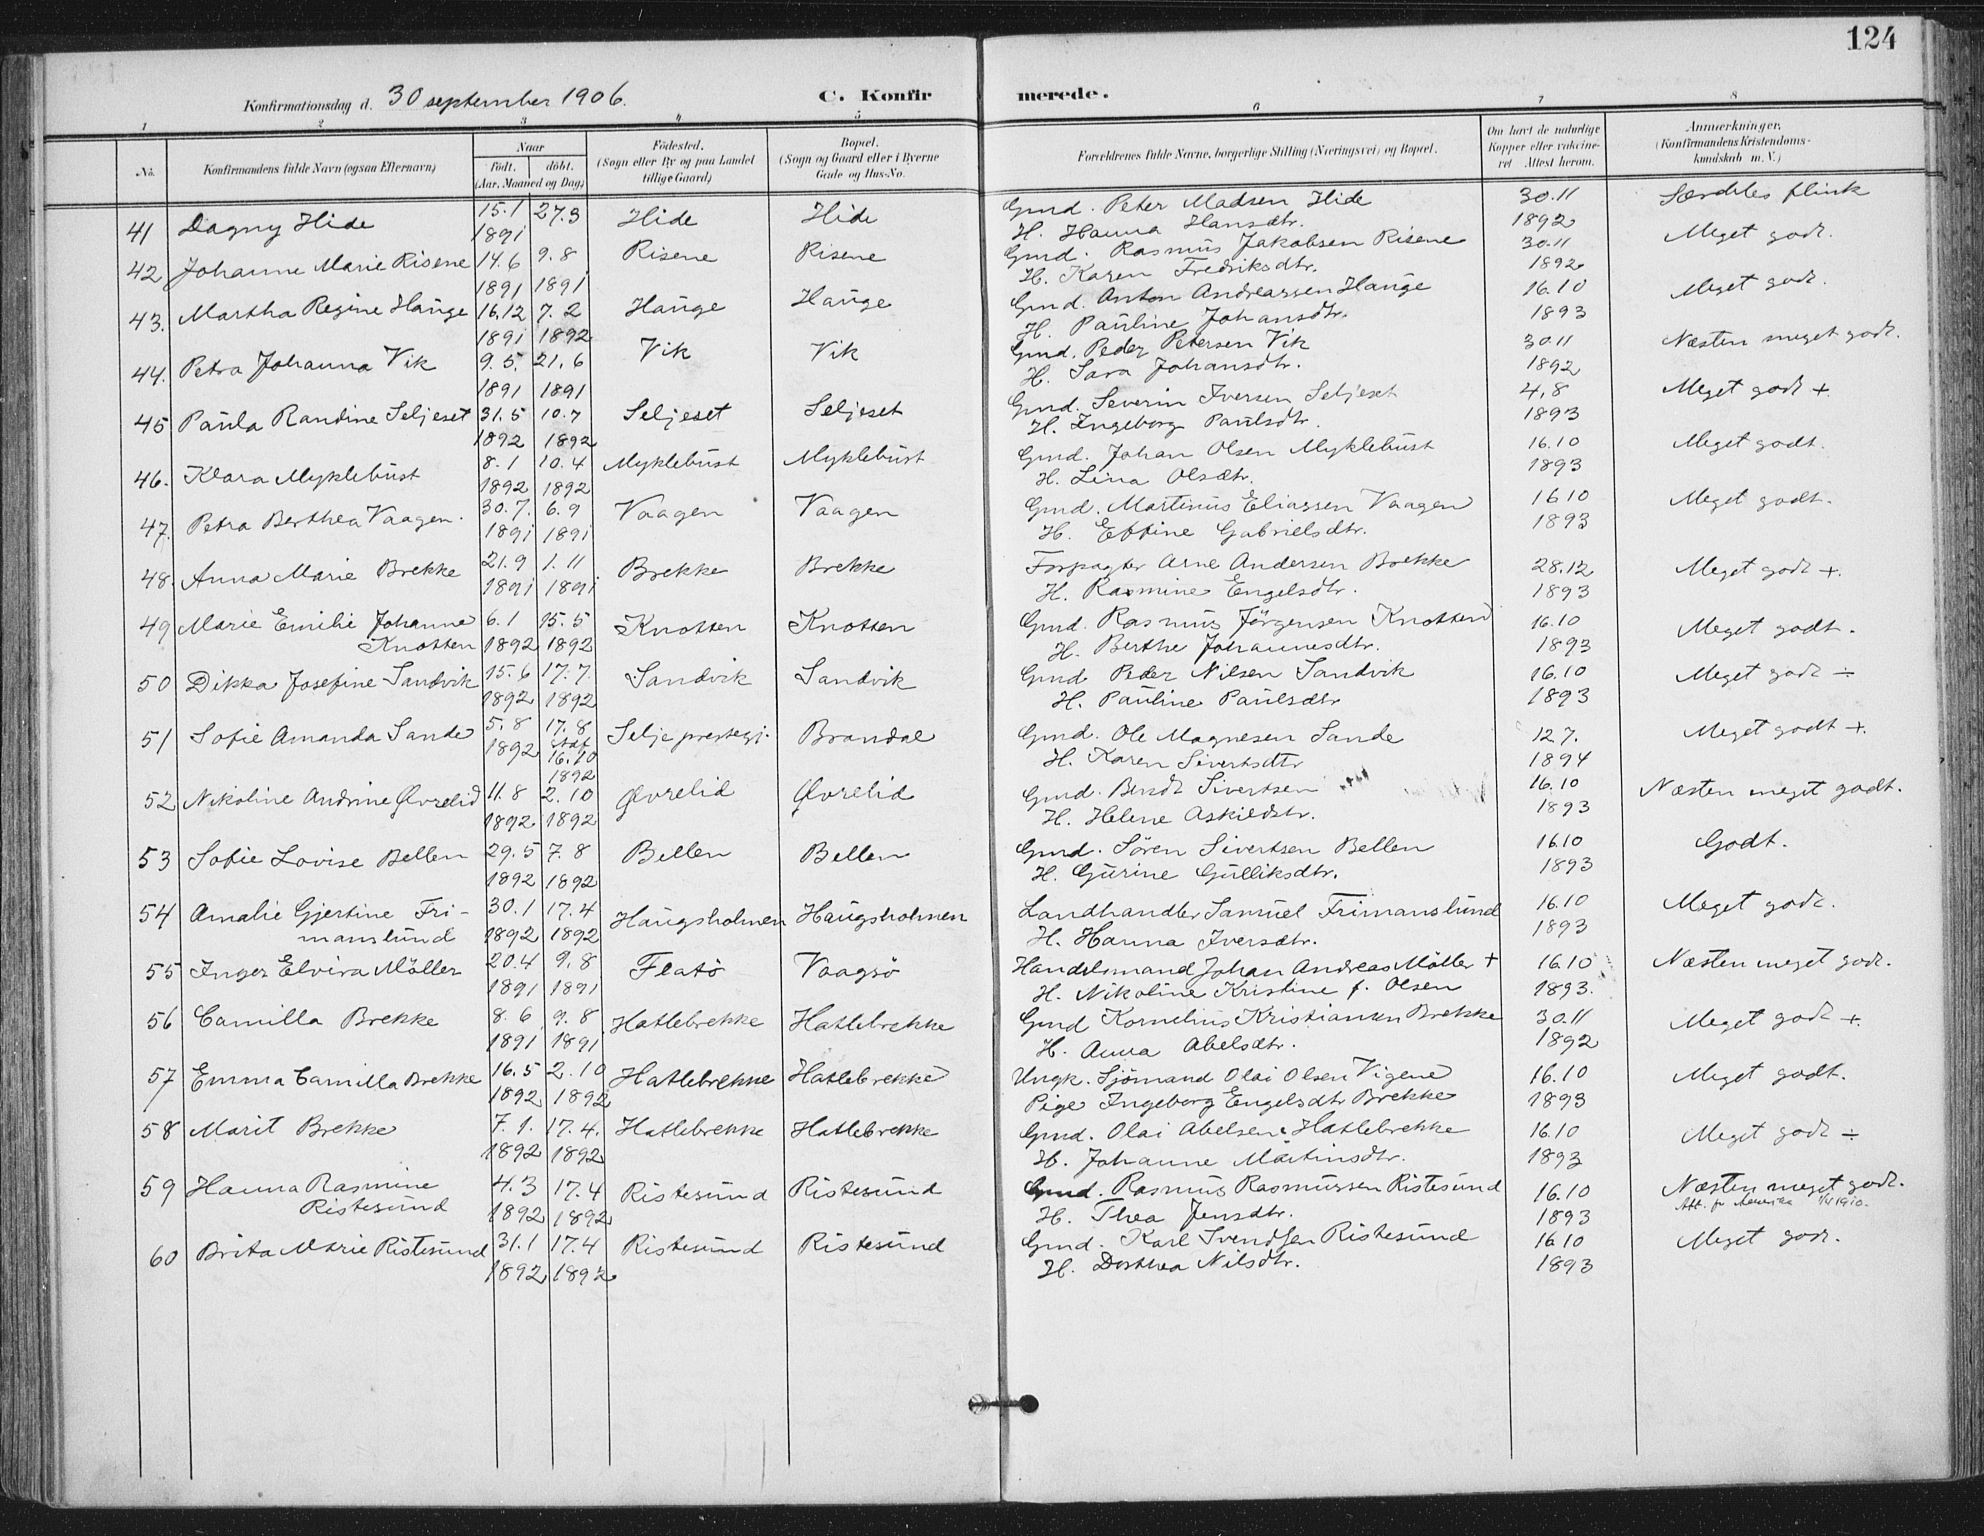 124
Konfirmationsdag d. 30 september 1906. C. Konfir merede.
1 2 3 4 5 6 7 8
No. Konfirmandens fulde Navn (ogsaa Efternavn) Naar født. døbt. (Aar, Maaned og Dag) Fødested. (Sogn eller By og paa Landet tillige Gaard) Bopæl. (Sogn og Gaard eller i Byerne Gade og Hus-No. Forældrenes fulde Navne, borgerlige Stilling (Næringsvei) og Bopæl. Om havt de naturlige Kopper eller vakcineret. Attest herom. Anmærkninger. (Konfirmandens Kristendomskundskab m. V.)
41 Dagny Hide 15.1 27.3 Hide Hide Gmd. Peter Madsen Hide 30.11 Særdeles flink
1891 H. Hanna Hansdtr. 1892
42 Johanne Marie Risene 14.6 9.8 Risene Risene Gmd. Rasmus Jakobsen Risene 30.11 Meget godt.
1891 1891 H. Karen Fredriksdtr. 1892
43. Martha Regine Hauge 16.12 7.2 Hauge Hauge Gmd. Anton Andreassen Hauge 16.10 Meget godt.
1891 1892 H. Pauline Johansdtr. 1893
44. Petra Johanna Vik 9.5. 21.6 Vik Vik Gmd. Peder Petersen Vik 30.11 Næsten meget godt.
1891 1891 H. Sara Johansdtr. 1892
45 Paula Randine Seljeset 31.5 10.7 Seljeset Seljeset Gmd. Severin Iversen Seljeset 4.8 Meget godt +
1892 1892 H. Ingeborg Paulsdtr. 1893
46. Klara Myklebust 8.1 10.4 Myklebust Myklebust Gmd. Johan Olsen Myklebust 16.10 Meget godt.
1892 1892 H. Lina Olsdtr. 1893
47. Petra Berthea Vaagen. 30.7. 6.9 Vaagen Vaagen Gmd. Martinus Eliassen Vaagen 16.10 Meget godt.
1891 1891 H. Effine Gabrielsdtr. 1893
48. Anna Marie Brekke 21.9 1.11 Brekke Brekke Forpagter Arne Andersen Brekke 28.12 Meget godt +.
1891 1891 H. Rasmine Engelsdtr. 1893
49 Marie Emilie Johanne 6.1 15.5 Knotten Knotten Gmd. Rasmus Jörgensen Knotten 16.10 Meget godt.
Knotten 1892 1892 H. Berthe Johannesdtr. 1893
50 Dikka Josefine Sandvik 15.6 17.7. Sandvik Sandvik Gmd Peder Nilsen Sandvik 16.10 Meget godt ÷
1892 1892 H. Pauline Paulsdtr 1893
51 Sofie Amanda Sande 5.8 17.8 Selje prestegj. Brandal Gmd. Ole Magnesen Sande 12.7. Meget godt +.
1892 stadf. 16.10 1892 H. Karen Sivertsdtr 1894
52 Nikoline Andrine Øvrelid 11.8 2.10 Øvrelid Øvrelid Gmd. Berdt Sivertsen 16.10 Næsten meget godt.
1892 1892 H. Helene Askildstr. 1893
53 Sofie Lovise Bellen 29.5 7.8 Bellen Bellen Gmd. Sören Sivertsen Bellen 16.10 Godt.
1892 1892 H. Gurine Gulliksdtr. 1893
54 Amalie Gjertine Fri- 30.1 17.4 Haugsholmen Haugsholmen Landhandler Samuel Frimanslund 16.10 Meget godt.
manslund 1892 1892 H. Hanna Iversdtr. 1893
55 Inger Elvira Möller 20.4 9.8 Flatö Vaagsö Handelsmand Johan Andreas Möller + 16.10 Næsten meget godt.
1891 1891 H. Nikoline Kristine f. Olsen 1893.
56 Camilla Brekke 8.6 9.8 Hatlebrekke Hatlebrekke Gmd Kornelius Kristiansen Brekke 30.11 Meget godt +.
1891 1891 H. Anna Abelsdtr. 1892
57 Emma Camilla Brekke 16.5 2.10 Hatlebrekke Hatlebrekke Ungk. Sjömand Olai Olsen Vigene 16.10 Meget godt.
1892 1892 Pige Ingeborg Engelsdtr Brekke 1893
58 Marit Brekke 7.1. 17.4. Hatlebrekke Hatlebrekke Gmd. Olai Abelsen Hatlebrekke 16.10 Meget godt ÷
1892 1892 H. Johanne Martinsdtr. 1893
59 Hanna Rasmine 4.3 17.4 Ristesund Ristesund Gmd. Rasmus Rasmussen Ristesund 16.10 Næsten meget godt.
Ristesund 1892 1892 H. Thea Jensdtr. 1893 Att. f. Amerika 1910.
60 Brita Marie Ristesund 31.1 17.4 Ristesund Ristesund Gmd. Karl Svendsen Ristesund 16.10 Meget godt.
1892 1892 H. Dorthea Nilsdtr. 1893